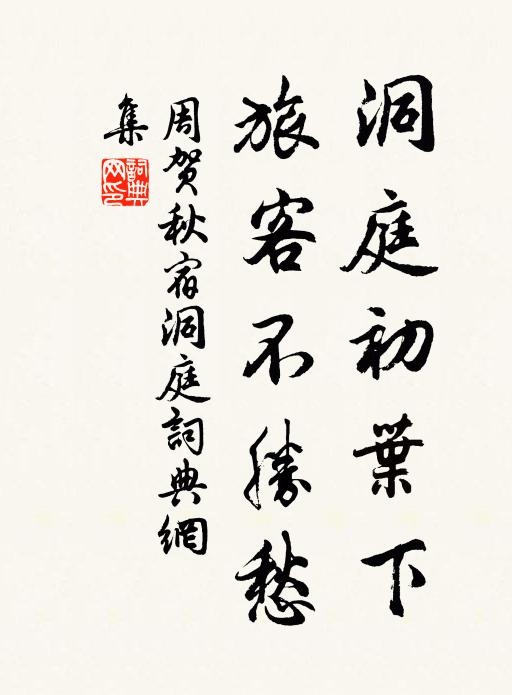 洞庭初葉下
旅客不勝愁
周賀秋宿洞庭詞典網
集
詞典網印